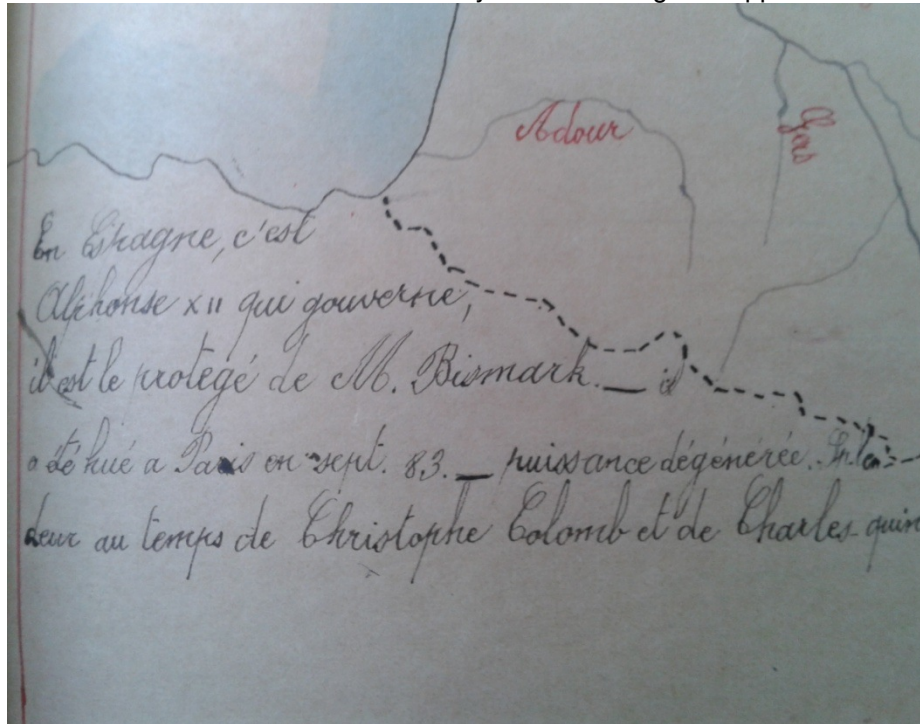 Adour
Gers
En Espagne, c'est
Alphonse XII qui gouverne,
il est le protégé de M. Bismark. — il
a été hué a Paris en sept. 83. — puissance dégénérée.
deur au temps de Christophe Colomb et de Charles-quin